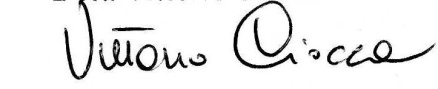 Vittorio Ciocca